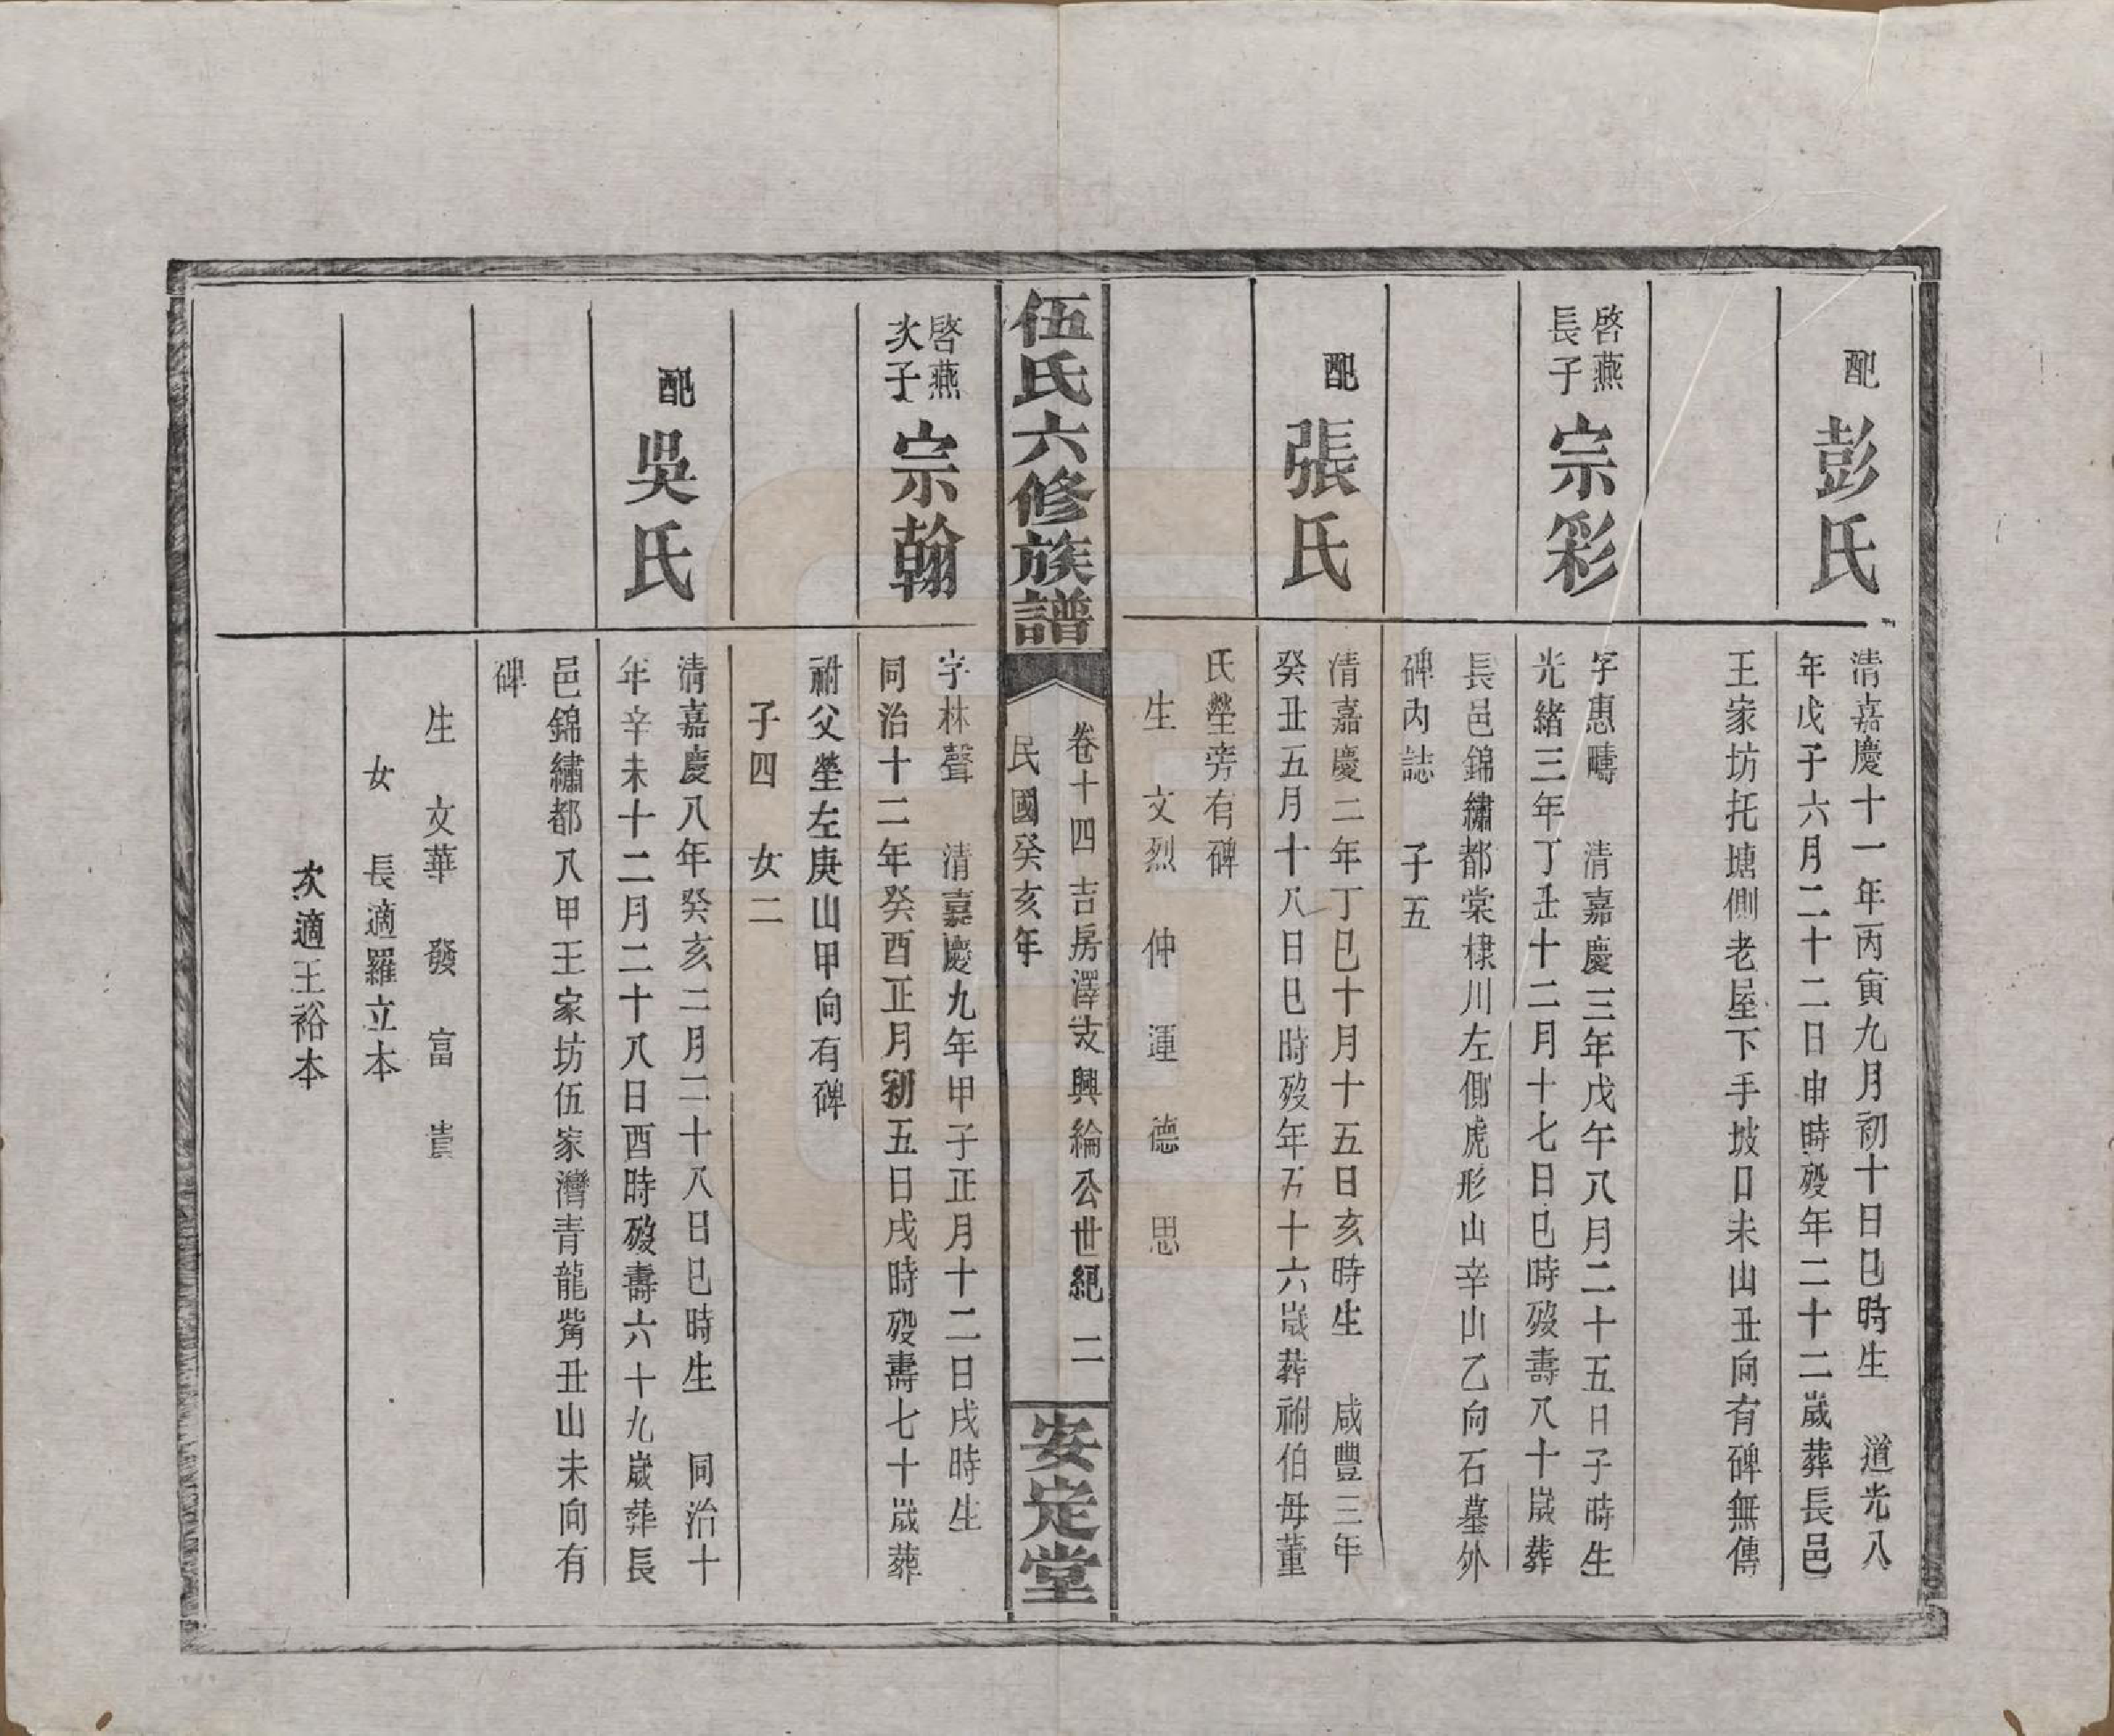 配
彭氏
清嘉慶十一年丙寅九月初十日巳時生　道光八
年戊子六月二十二日申時歿年二十二歲葬長邑
王家坊托塘側老屋下手坡口未山丑向有碑無傳
啓燕
長子
宗彩
字惠疇　清嘉慶三年戊午八月二十五日子時生
光緒三年丁丑十二月十七日巳時歿壽八十歲葬
長邑錦繡都棠棣川左側虎形山辛山乙向石墓外
碑內誌　子五
配
張氏
清嘉慶二年丁巳十月十五日亥時生　咸豐三年
癸丑五月十八日巳時歿年五十六歲葬祔伯母董
氏塋旁有碑
生　文烈　仲　運　德　思
伍氏六修族譜
卷十四　吉房澤支興綸公世紀　二
民國癸亥年
安定堂
啓燕
次子
宗翰
字林聲　清嘉慶九年甲子正月十二日戌時生
同治十二年癸酉正月初五日戌時歿壽七十歲葬
祔父塋左庚山甲向有碑
子四　女二
配
吳氏
清嘉慶八年癸亥二月二十八日巳時生　同治十
年辛未十二月二十八日酉時歿壽六十九歲葬長
邑錦繡都八甲王家坊伍家灣青龍嘴丑山未向有
碑
生　文華　發　富　貴
女　長適羅立本
次適王裕本